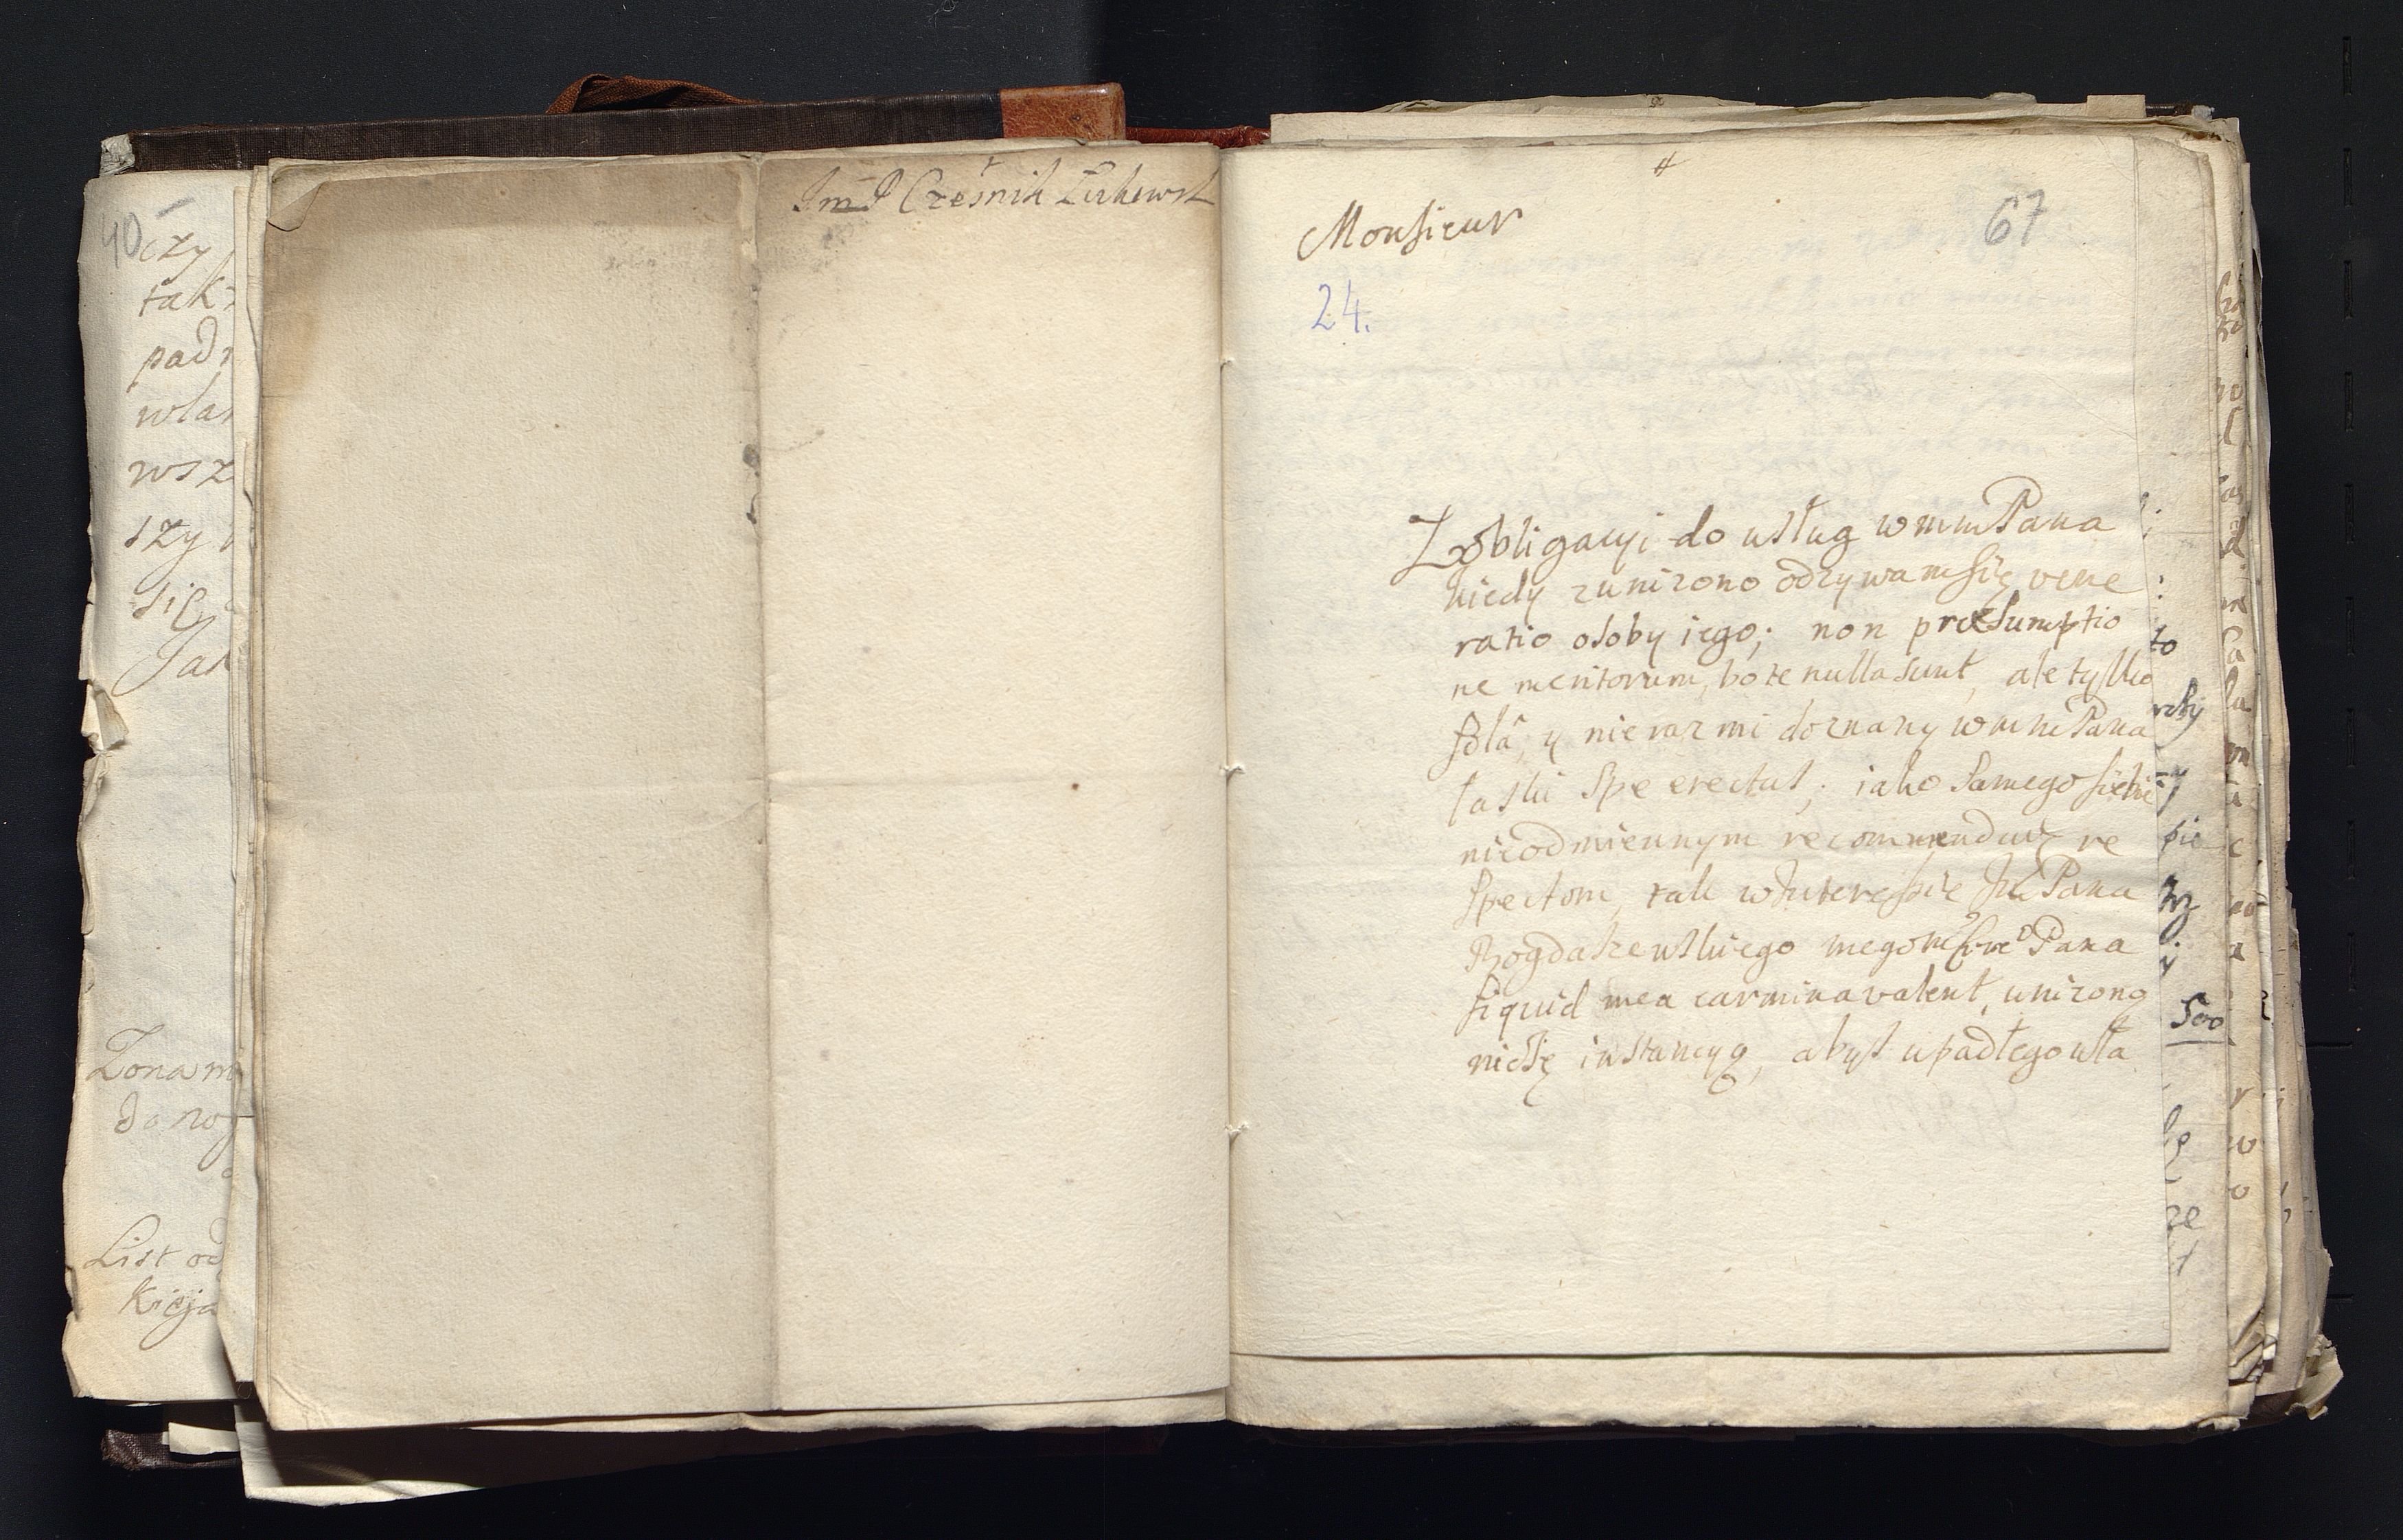 40
czy
tak
padn
wsz
szy
się
Jak
Zona m
do no
List od
Kieja
ImP Cześnik Łukowsk
#
67
Monsieur
24.
Z obligacyi do usług wmmPana
kiedy zunizono odzywam się vene
ratio osoby iego; non præsumptio
ne meritorum, bo te nulla sunt, ale tylko
solâ, y nieraz mi doznany wmmPana
łaski spe erectus; iako samego siebie
nieodmiennym recommenduię re
spektom, tak w Interessie Pana
Bogdaszewskiego mego Pana
si quid mea carmina valent, unizoną
niosę instancyą, abyś upadłego wła
to
500
ze